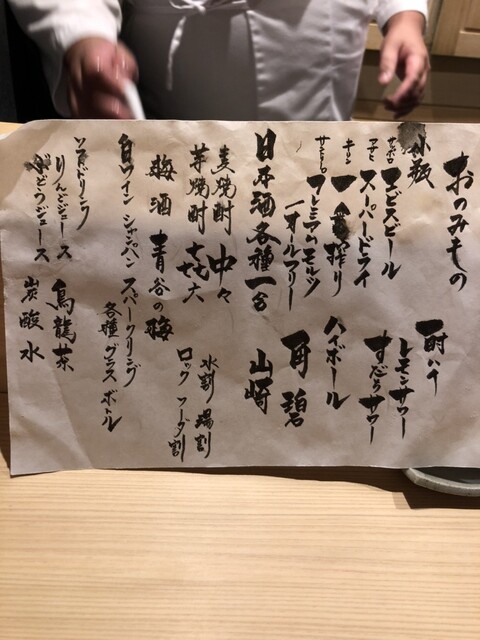 おのみもの
小瓶
サッポロ ヱビスビール
アサヒ スーパードライ
キリン 一番搾り
サントリー プレミアムモルツ
オールフリー
酎ハイ
レモンサワー
すだちサワー
ハイボール
角 碧
山崎
日本酒各種一合
麦焼酎 中々
芋焼酎 㐂六
水割 湯割
ロック ソーダ割
梅酒 青谷の梅
白ワイン シャンパン スパークリング
各種 グラス ボトル
ソフトドリンク
りんごジュース 烏龍茶
ぶどうジュース 炭酸水